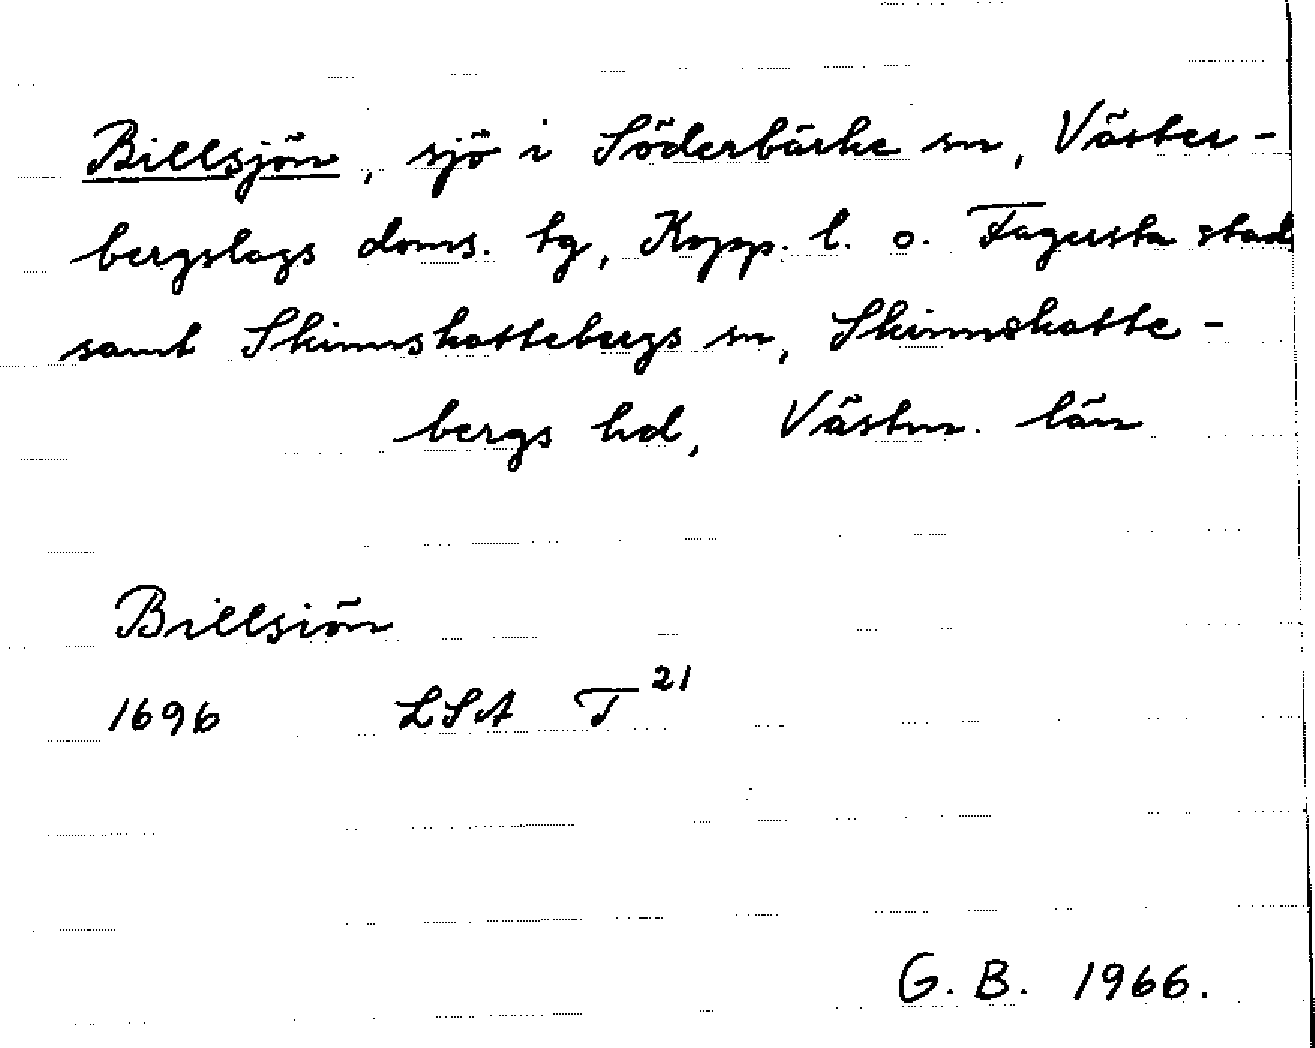 Billsjön, sjö i Söderbärke sn, Väster-
bergslags doms. tg, Kopp. l. o. Fagersta stad
samt Skinnskattebergs sn, Skinnskatte-
bergs hd, Västm. län
Billsiön
1696 LSA T 21
G. B. 1966.